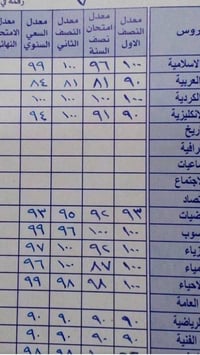 روس معدل النصف الاول معدل امتحان نصف السنة معدل النصف الثاني معدل السعي السنوي
الاسلامية ١٠٠ ٩٦ ١٠٠ ٩٩
العربية ٩٠ ٨١ ٨١ ٨٤
الكردية ١٠٠ ١٠٠ ١٠٠ ١٠٠
لانكليزية ٩٠ ٩١ ١٠٠ ٩٤
ريخ
رافية
ماعيات
لاجتماع
تصاد
ضيات ٩٣ ٩٢ ٩٥ ٩٣
سوب ١٠٠ ١٠٠ ٩٦ ٩٩
زياء ١٠٠ ٩٢ ١٠٠ ٩٧
مياء ١٠٠ ٨٧ ١٠٠ ٩٦
لاحياء ١٠٠ ٩٨ ٩٨ ٩٩
العامة
لرياضية ٩٠ ٩٠ ٩٠ ٩٠
الفنية ٩٠ ٩٠ ٩٠ ٩٠